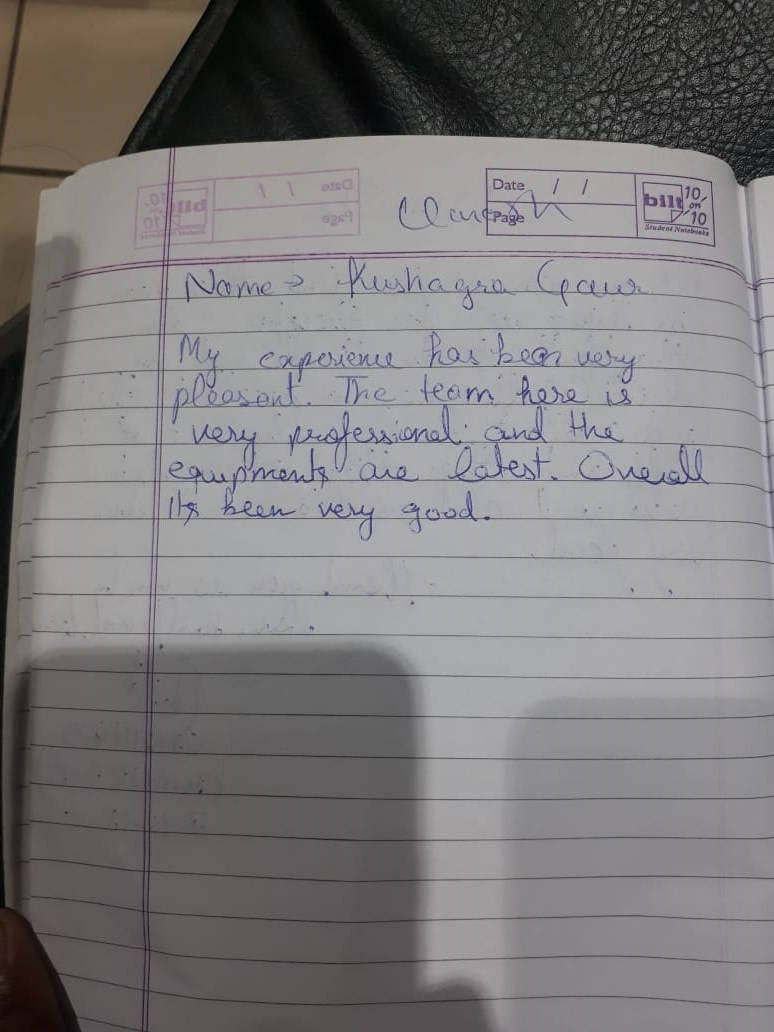 Date / /
Page
bilt 10 on 10
Student Notebooks
Name → Kushagra Gaur
My experience has been very
pleasant. The team here is
very professional and the
equipments are latest. Overall
Its been very good.